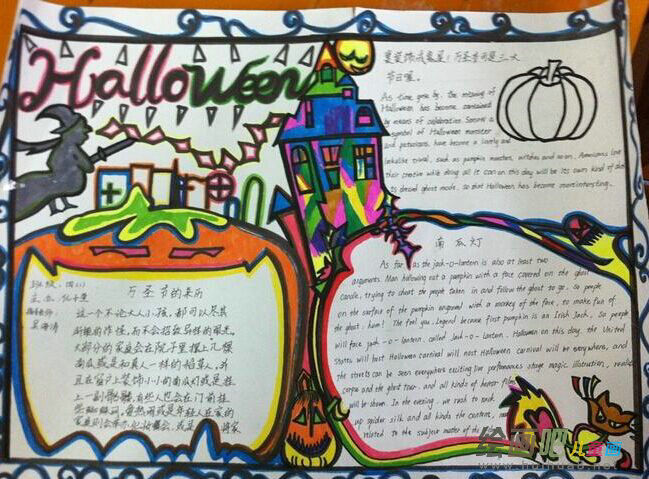 Halloween
要装饰
万圣节
三大
节日喔。
As time goes by, the meaning of
Halloween has become contained
by means of celebration
a symbol of Halloween monster
and have become a lovely and
such as pumpkin monsters, witches and so on. Americans love
their creative while doing all it can on this day will be its own kind of
to ghost mode, so that Halloween has become more interesting.
班级：四
万圣节的来历
这一个不论大人小孩，都可以尽其
所能的作怪，而不会招致异样的眼光。
大部分的家庭会在院子里摆上几颗
南瓜或是和真人一样的稻草人，并
且在窗户上装饰小小的南瓜灯或是挂
上一副骷髅，有些人也会在门前挂
或是年轻人在家的
家庭则会举办化妆舞会，或是 将家
南瓜灯
As far as the jack-o-lantern is also at least two
arguments. Man hollowing out a pumpkin with a face carved on the ghost
candle, trying to the people taken in and follow the ghost to go. So people
on the surface of the pumpkin engraved with a mockery of the face, to make fun of
the ghost: hum! The fool you. Legend because first pumpkin is an Irish Jack, So
will face jack-o-lantern. called Jack-o-lantern. Halloween on this day, the United
States will host Halloween carnival will host Halloween carnival will be everywhere, and
the streets can be seen everywhere exciting live performances stage magic illustration, realistic
corpse and the ghost tour, and all kinds of horror film
will be shown. In the evening, we rush to
up spider silk and all kinds the centers,
related to the subject matter of the
绘画吧
儿童画